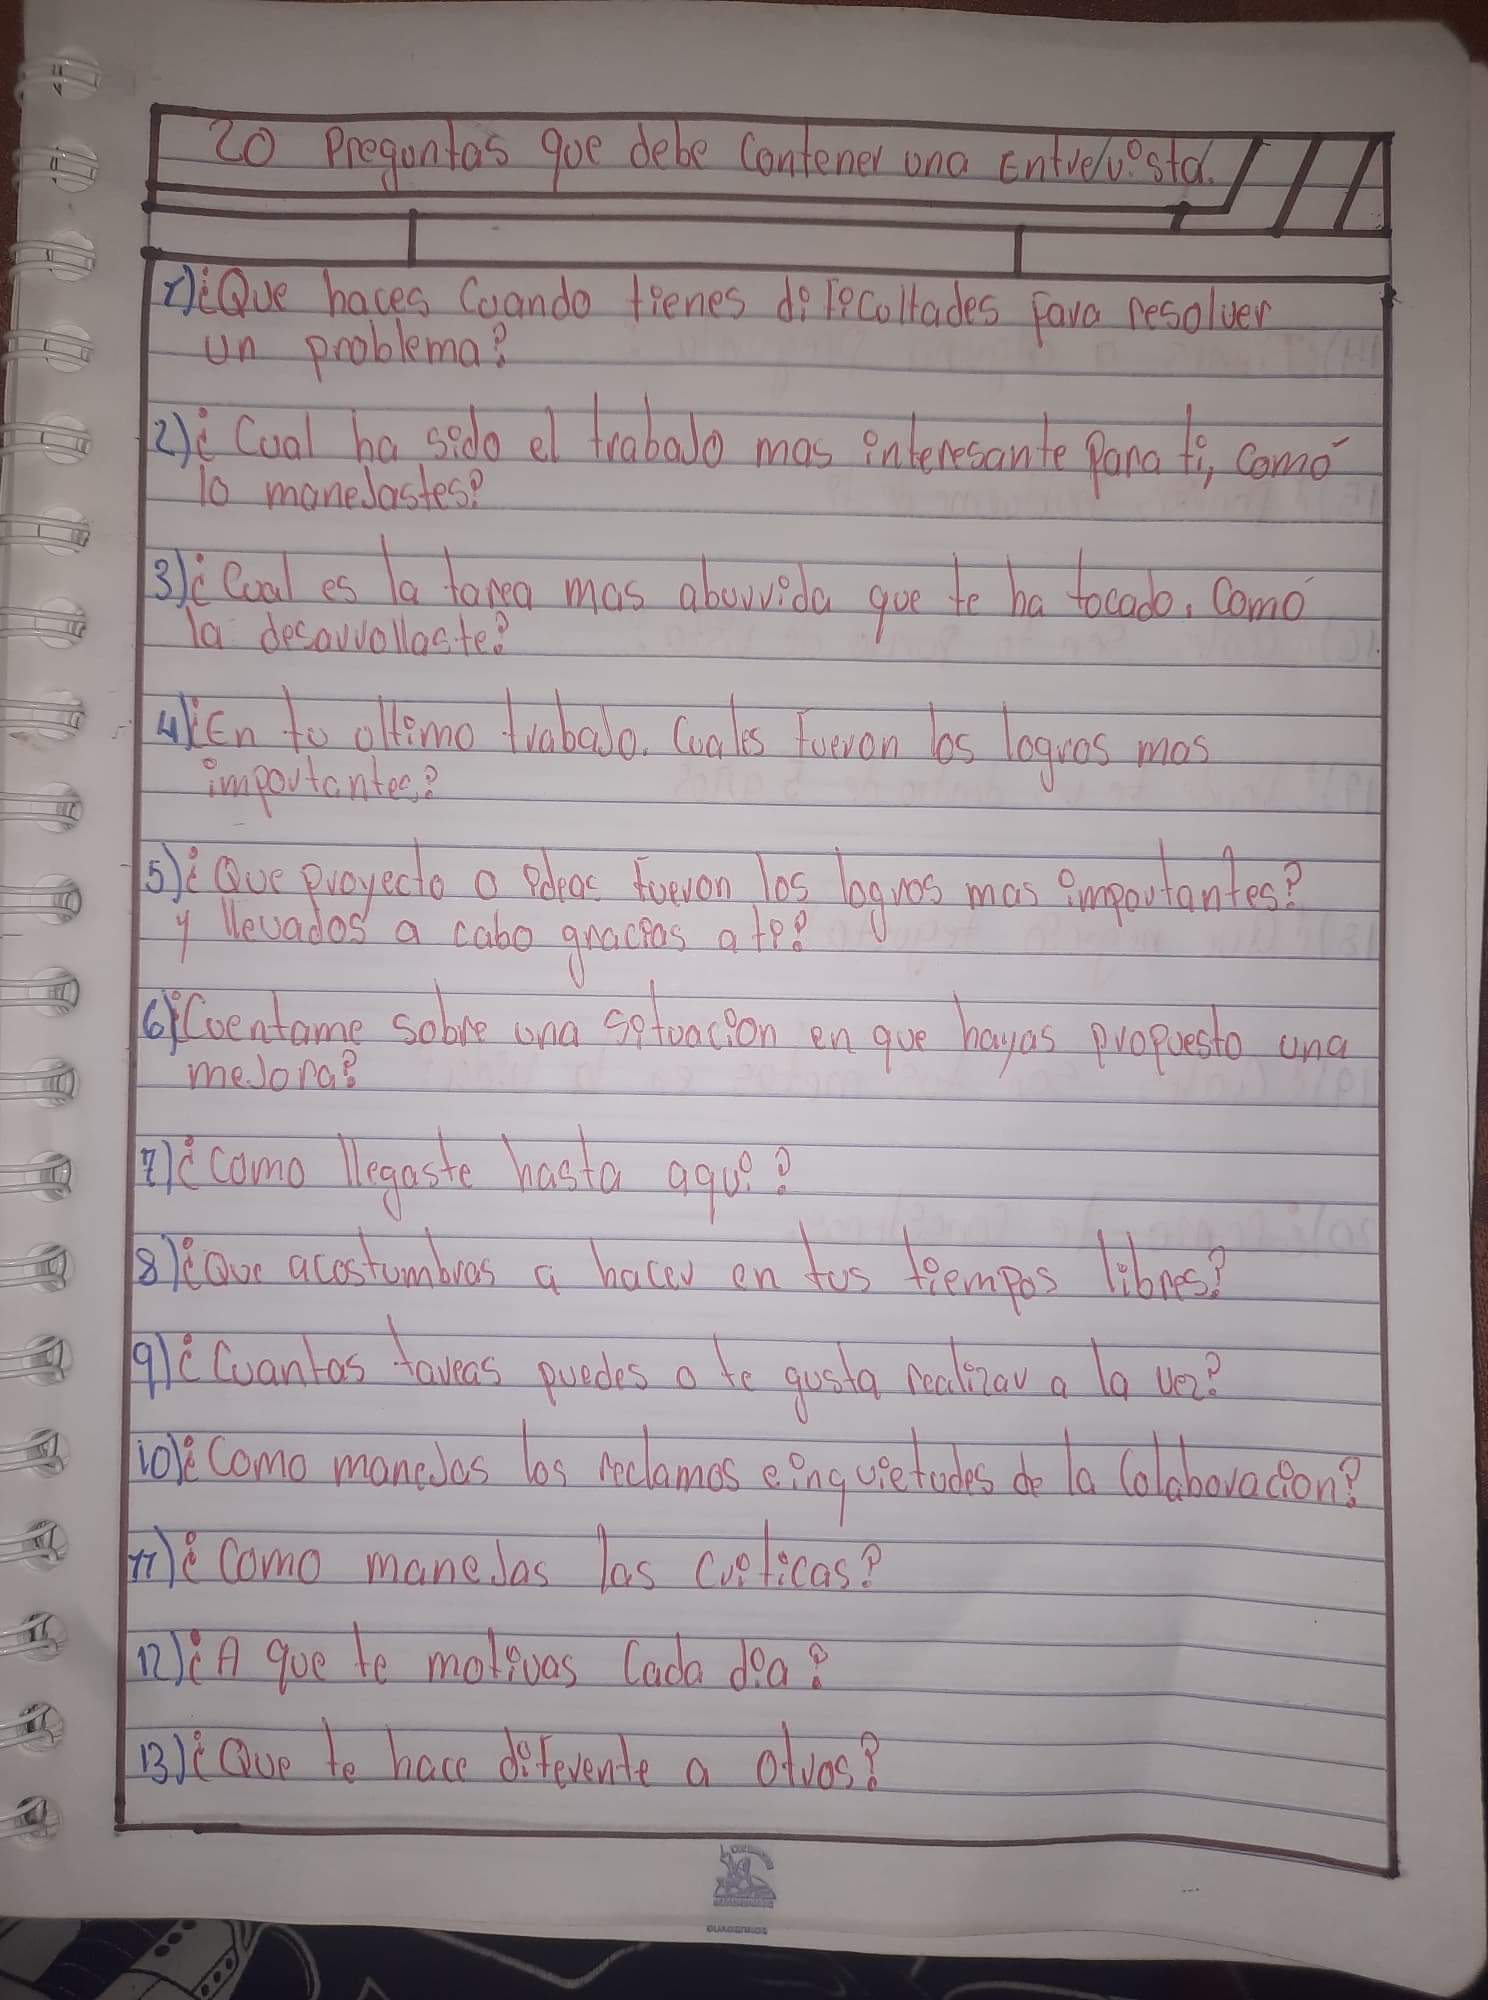 20 Preguntas que debe Contener una Entrevista.
1) ¿Que haces Cuando tienes dificultades para resolver
un problema?
2) ¿Cual ha sido el trabajo mas interesante Para ti, Comó
lo manejastes?
3) ¿Cual es la tarea mas aburrida que te ha tocado, Comó
la desarrollaste?
4) ¿En tu ultimo trabajo. Cuales fueron los logros mas
importantes?
5) ¿Que proyecto o ideas fueron los logros mas importantes?
y llevados a cabo gracias a ti?
6) ¿Cuentame sobre una situacion en que hayas propuesto una
mejora?
7) ¿Como llegaste hasta aqui?
8) ¿Que acostumbras a hacer en tus tiempos libres?
9) ¿Cuantas tareas puedes o te gusta realizar a la vez?
10) ¿Como manejas los reclamos e inquietudes de la Colaboracion?
11) ¿Como manejas las criticas?
12) ¿A que te motivas Cada dia?
13) ¿Que te hace diferente a otros?